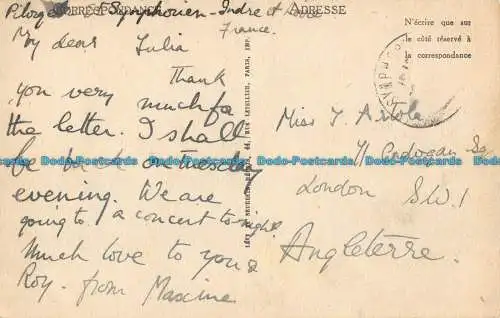 CORRESPONDANCE
ADRESSE
St Symphorien - Indre et Loire
France.
N'écrire que sur
le côté réservé à
la correspondance
My dear Julia
Thank
you very much for
the letter. I shall
be back on Tuesday
evening. We are
going to a concert to-night
Much love to you &
Roy. from Maxine
PARIS, IMP.
Miss J.
71 Cadogan Sq
London S.W.1
Angleterre.
Dodo-Postcards Dodo-Postcards Dodo-Postcards Dodo-Postcards